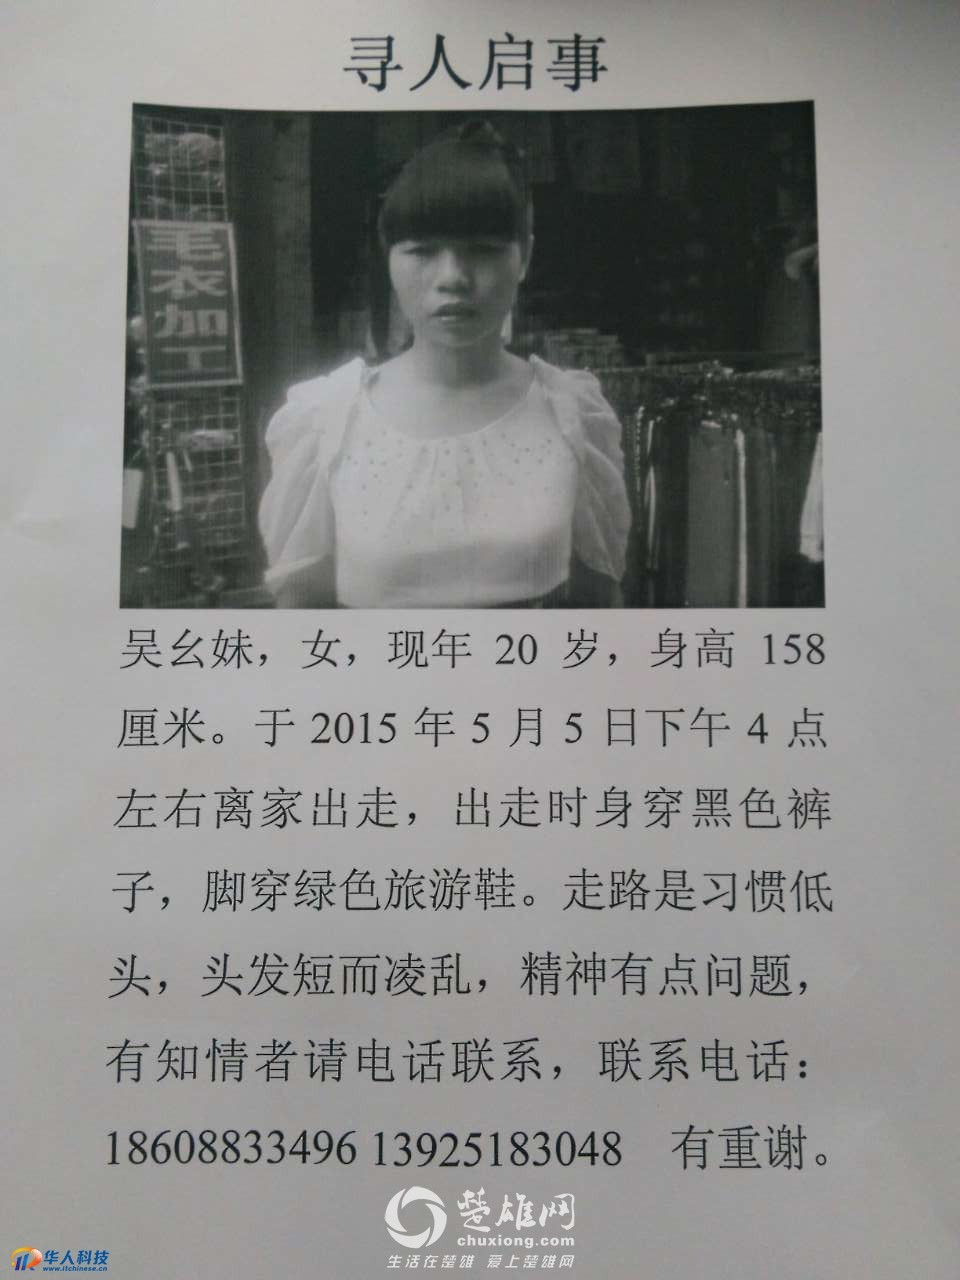 寻人启事
毛衣加工
吴幺妹，女，现年 20 岁，身高 158
厘米。于 2015 年 5 月 5 日下午 4 点
左右离家出走，出走时身穿黑色裤
子，脚穿绿色旅游鞋。走路是习惯低
头，头发短而凌乱，精神有点问题，
有知情者请电话联系，联系电话：
18608833496 13925183048 有重谢。
楚雄网
chuxiong.com
生活在楚雄 爱上楚雄网
华人科技
www.itchinese.cn